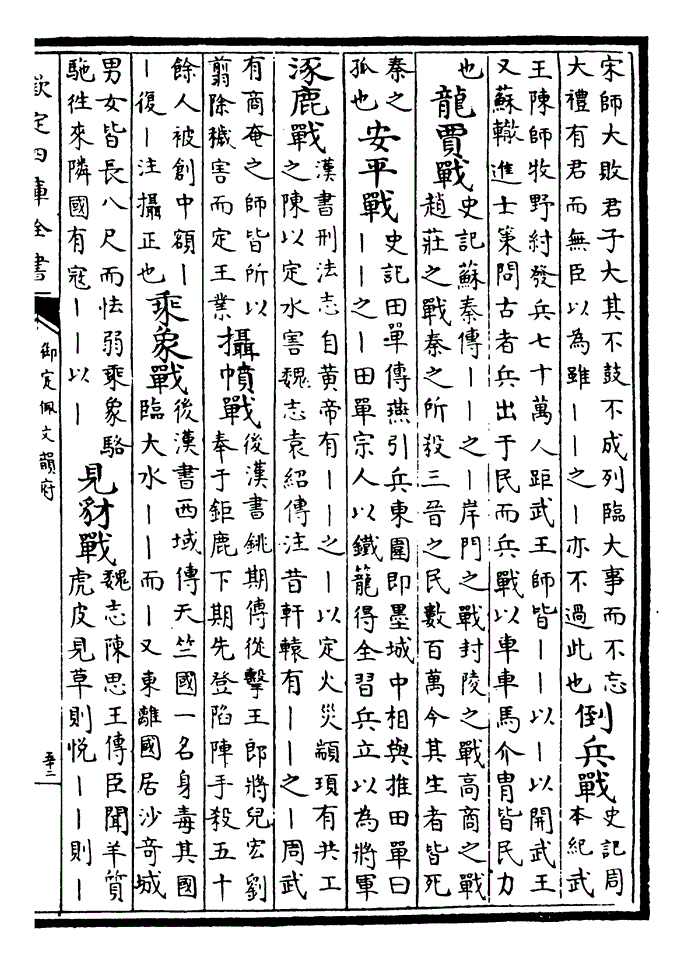 宋師大敗君子大其不鼓不成列臨大事而不忘
大禮有君而無臣以為雖丨丨之丨亦不過此也
倒兵戰
史記周
本紀武
王陳師牧野紂發兵七十萬人距武王師皆丨丨以丨以開武王
又蘇轍進士策問古者兵出于民而兵戰以車車馬介胄皆民力
也
龍賈戰
史記蘇秦傳丨丨之丨岸門之戰封陵之戰高商之戰
趙莊之戰秦之所殺三晉之民數百萬今其生者皆死
秦之
孤也
安平戰
史記田單傳燕引兵東圍即墨城中相與推田單曰
丨丨之丨田單宗人以鐵籠得全習兵立以為將軍
涿鹿戰
漢書刑法志自黃帝有丨丨之丨以定火災顓頊有共工
之陳以定水害魏志袁紹傳注昔軒轅有丨丨之丨周武
有商奄之師皆所以
翦除穢害而定王業
攝幘戰
後漢書銚期傳從擊王郎將兒宏劉
奉于鉅鹿下期先登陷陣手殺五十
餘人被創中額丨
丨復丨注攝正也
乘象戰
後漢書西域傳天竺國一名身毒其國
臨大水丨丨而丨又東離國居沙奇城
男女皆長八尺而怯弱乘象駱
馳往來隣國有寇丨丨以丨
見豺戰
魏志陳思王傳臣聞羊質
虎皮見草則悅丨丨則丨
欽定四庫全書
御定佩文韻府